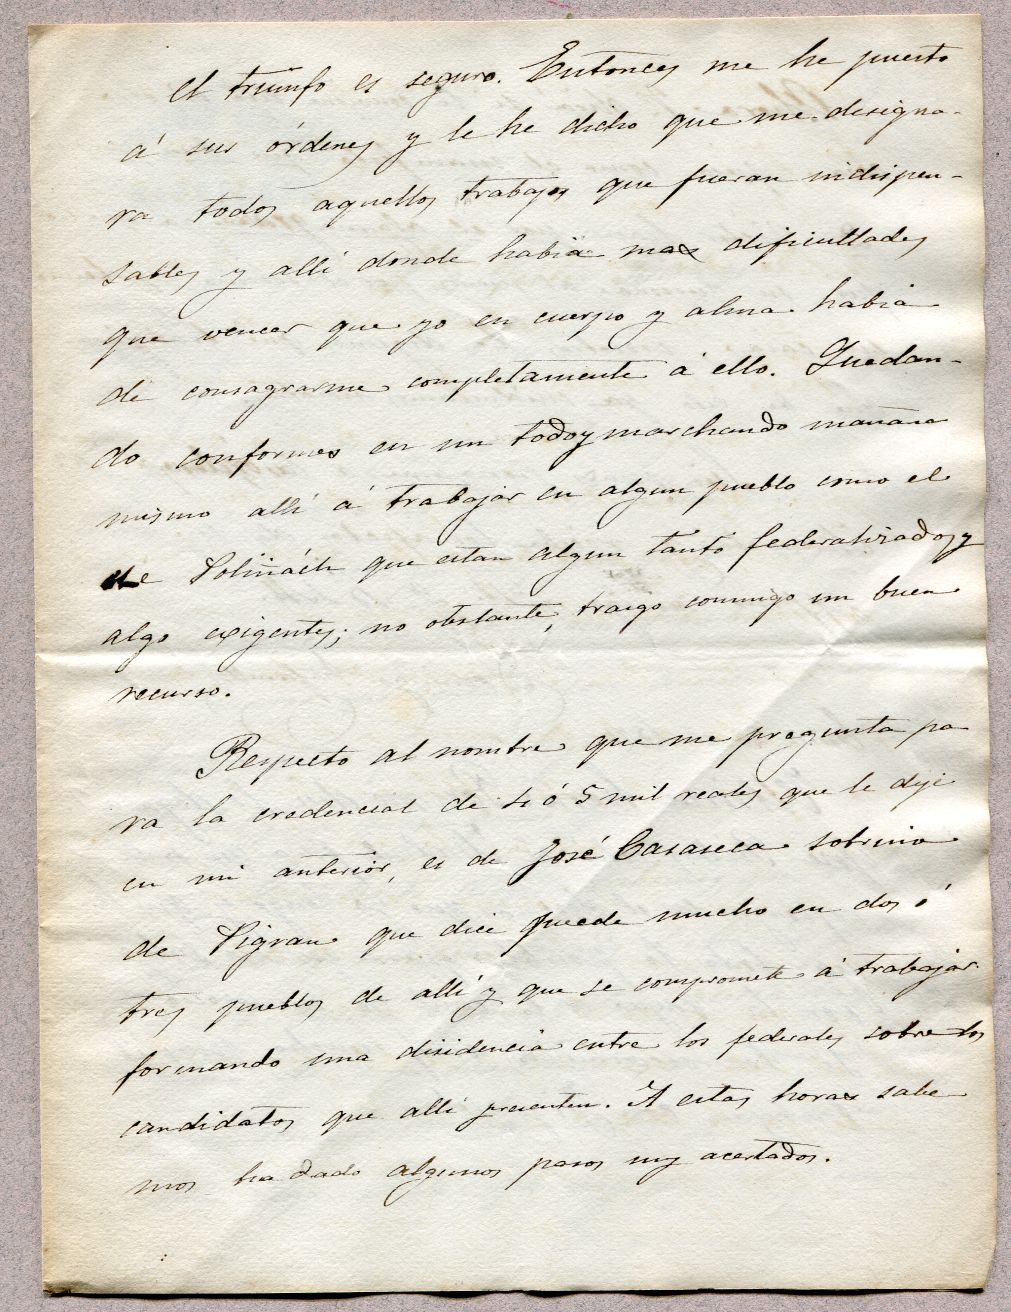 el triunfo es seguro. Entonces me he puesto
á sus órdenes y le he dicho que me designa-
ra todos aquellos trabajos que fueran indispen-
sables y allí donde habia mas dificultades
que vencer que yo en cuerpo y alma habia
de consagrarme completamente á ello. Quedan-
do conformes en un todo y marchando mañana
mismo allí á trabajar en algun pueblo como el
de que estan algun tanto federalizados y
algo exigentes; no obstante, traigo conmigo un buen
recurso.
Respecto al nombre que me pregunta pa
ra la credencial de 4 ó 5 mil reales que le dije
en mi anterior, es de José Casaseca sobrino
de Pigrau que dice puede mucho en dos ó
tres pueblos de allí y que se compromete á trabajar
formando una disidencia entre los federales sobre los
candidatos que allí presenten. A estas horas sabe
mos ha dado algunos pasos muy acertados.